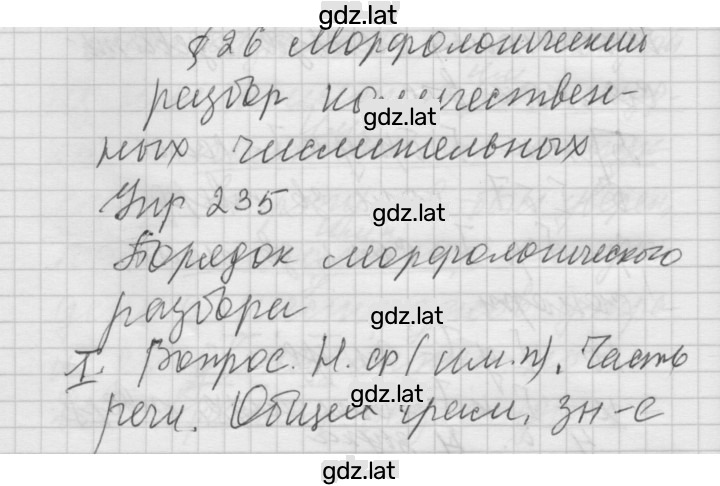 gdz.lat
§ 26 Морфологический
разбор количествен-
gdz.lat
ных числительных
Упр 235
gdz.lat
Порядок морфологического
разбора
gdz.lat
I. Вопрос. Н. ф (им.п). Часть
речи. Общее грам. зн-е
gdz.lat